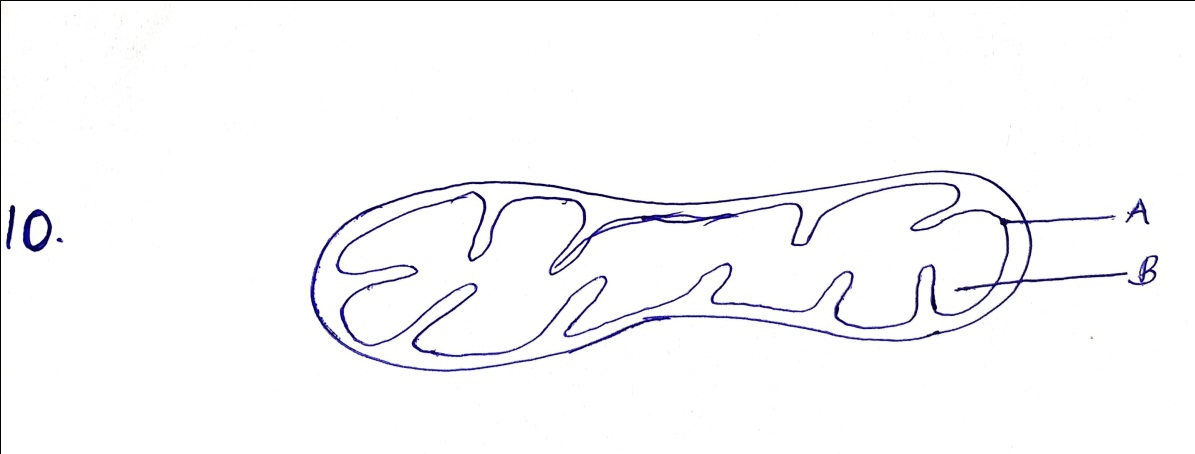 10.
A
B